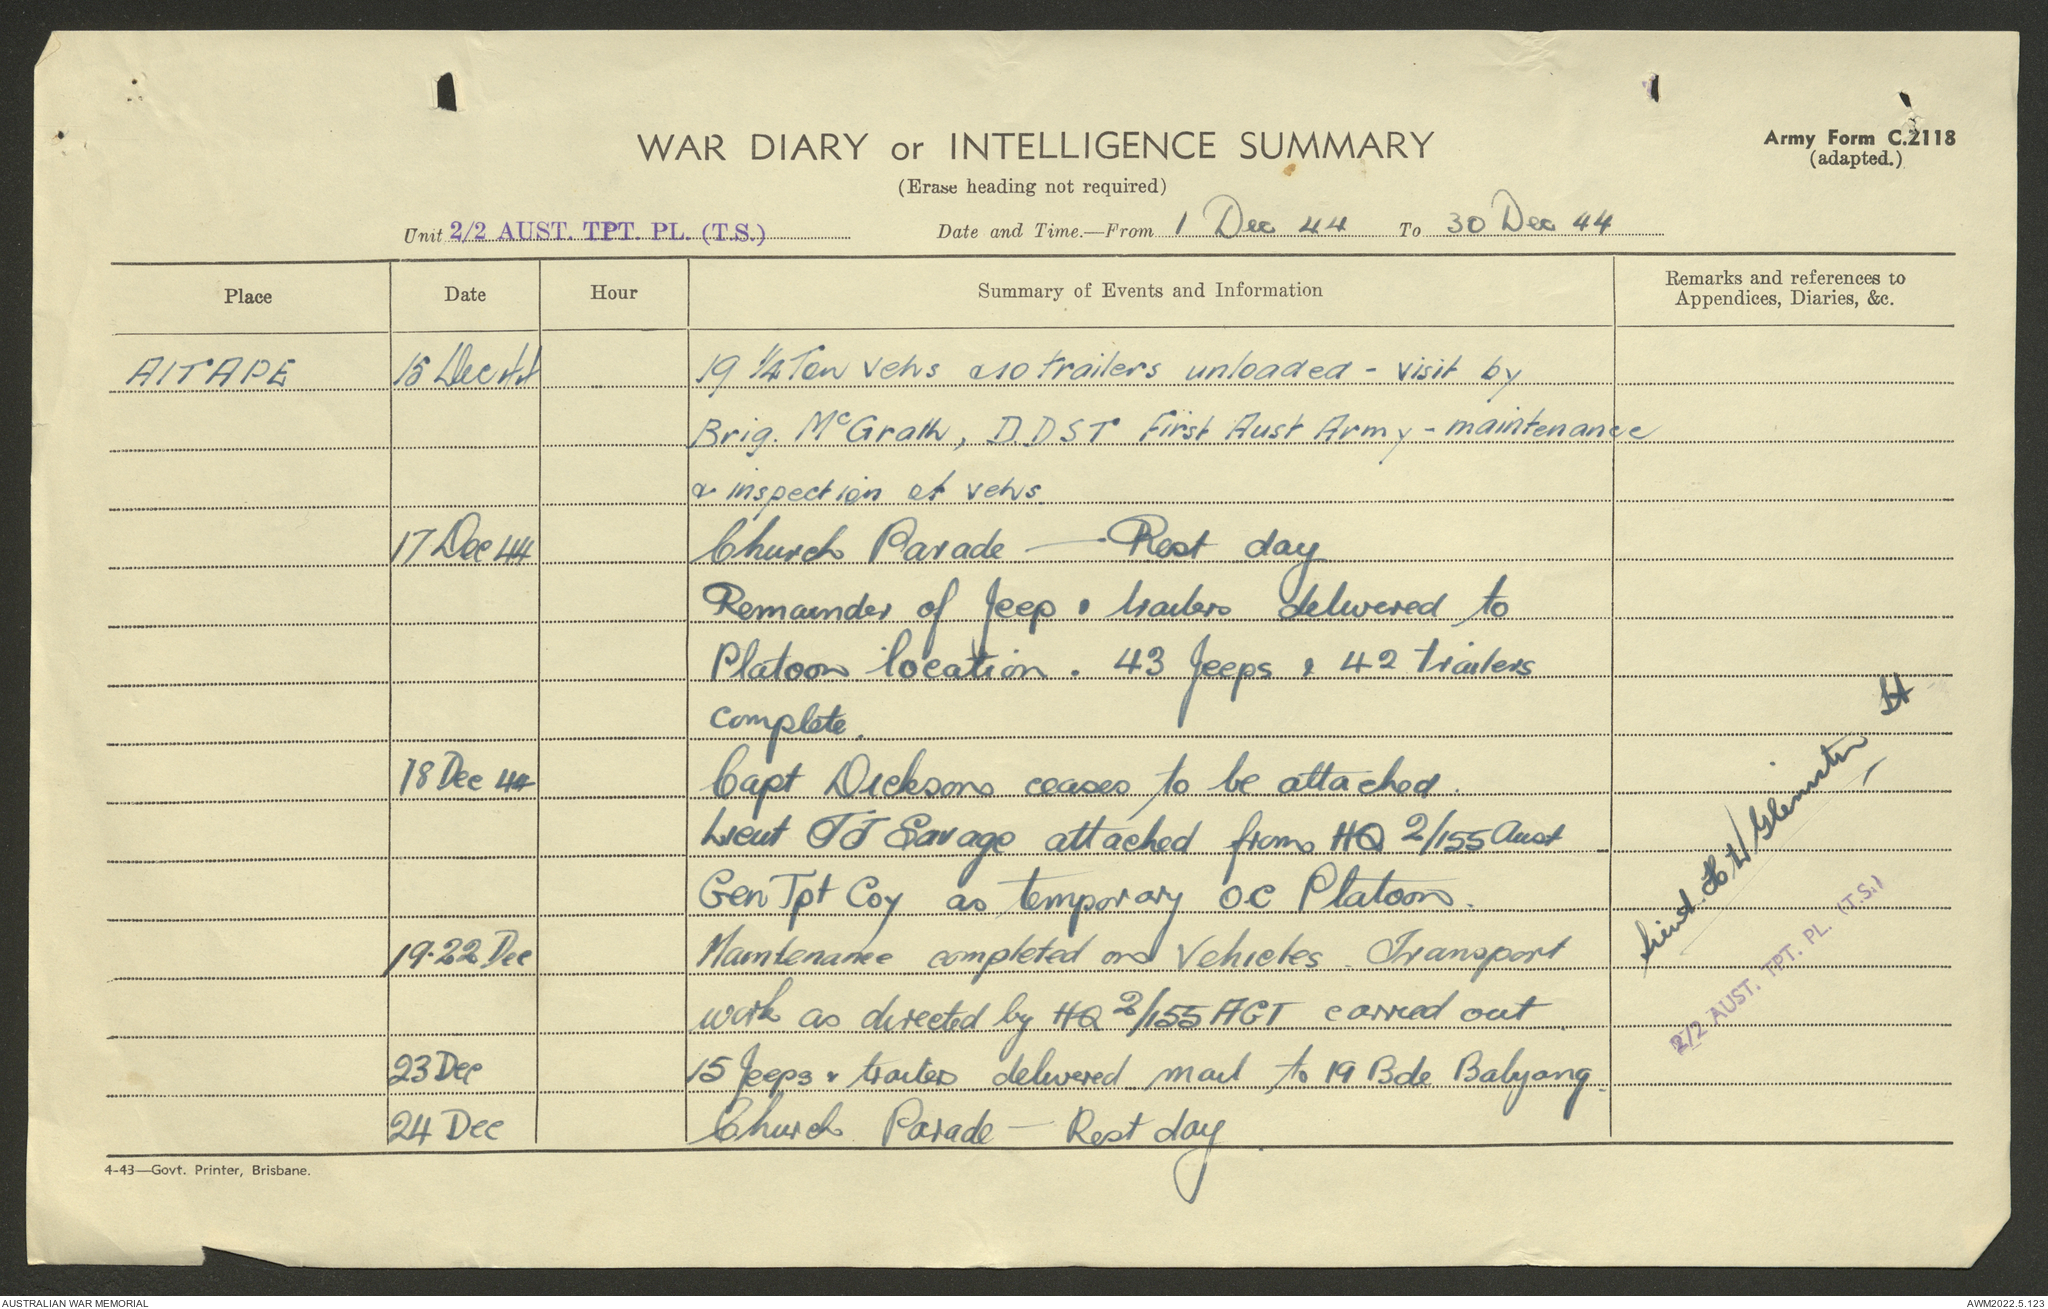 WAR DIARY or INTELLIGENCE SUMMARY
Army Form C.2118
(adapted.)
(Erase heading not required)
Unit 2/2 AUST. TPT. PL. (T.S.) Date and Time.—From 1 Dec 44 To 30 Dec 44
Place Date Hour Summary of Events and Information Remarks and references to Appendices, Diaries, &c.
AITAPE 15 Dec 44 19 1/4 Ton vehs & 10 trailers unloaded - visit by
Brig. McGrath, DDST First Aust Army - maintenance
& inspection of vehs.
17 Dec 44 Church Parade — Rest day
Remainder of Jeep & trailers delivered to
Platoon location. 43 Jeeps & 42 trailers
complete.
18 Dec 44 Capt Dickson ceases to be attached.
Lieut TJ Savage attached from HQ 2/155 Aust
Gen Tpt Coy as temporary OC Platoon.
19-22 Dec Maintenance completed on Vehicles. Transport
work as directed by HQ 2/155 AGT carried out
23 Dec 15 Jeeps & trailers delivered mail to 19 Bde Babyang.
24 Dec Church Parade — Rest day
Lieut
Lt
2/2 AUST. TPT. PL. (T.S.)
4-43—Govt. Printer, Brisbane.
AUSTRALIAN WAR MEMORIAL
AWM2022.5.123